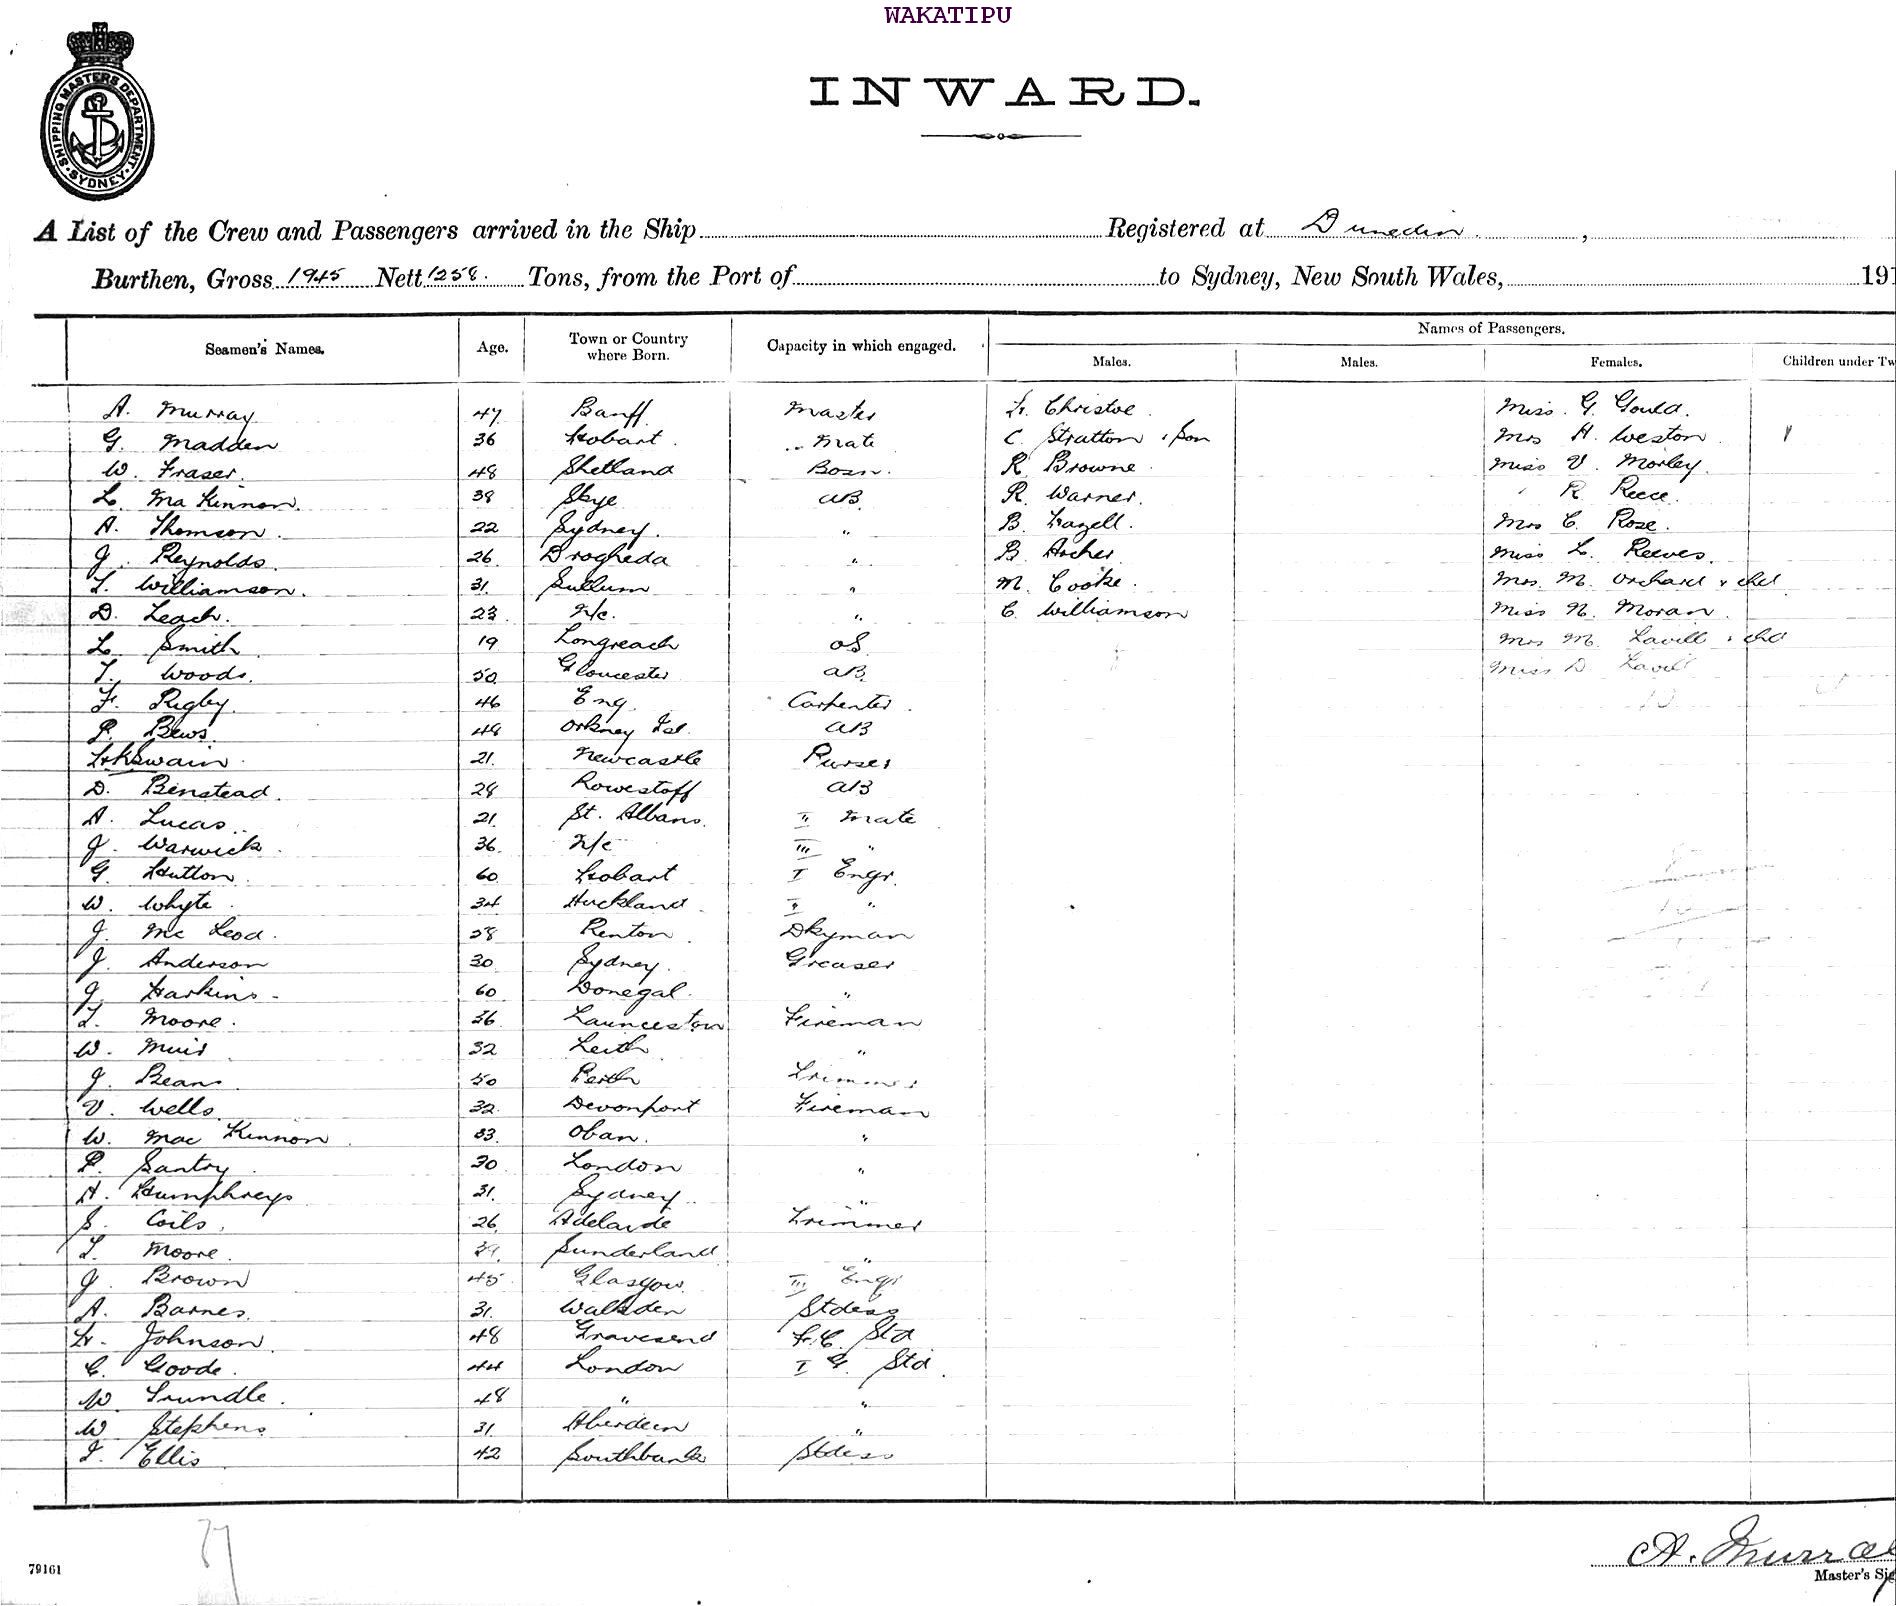 WAKATIPU
INWARD.
SHIPPING MASTERS DEPARTMENT · SYDNEY ·
A List of the Crew and Passengers arrived in the Ship Registered at Dunedin ,
Burthen, Gross 1945 Nett 1258. Tons, from the Port of to Sydney, New South Wales, 191
Names of Passengers.
Seamen's Names. Age. Town or Country where Born. Capacity in which engaged. Males. Males. Females. Children under Tw
A. Murray 47 Banff Master Christoe. Miss. G. Gould.
G. Madden 36 Hobart. Mate C. Stratton & Son Mrs H. Weston 1
W. Fraser. 48 Shetland Bosn. R Browne. Miss V. Morley.
L. MacKinnon. 38 Skye AB. R. Warner. " R. Reece.
A. Thomson. 22 Sydney. " B. Hazell. Mrs C. Rose.
J. Reynolds. 26 Drogheda " B. Archer Miss L. Reeves.
T. Williamson. 31. Sullum " M. Cooke. Mrs. M. Orchard & chd
D. Leach. 23 N/c. " C. Williamson Miss N. Moran.
L. Smith 19 Longreach OS. Mrs M. Lavill & chd
T. Woods. 50 Gloucester AB. Miss D. Lavill
F. Rigby. 46 Eng. Carpenter.
P. Bews. 48 Orkney Isl. AB
Swain 21. Newcastle Purser
D. Binstead. 28 Lowestoff AB
A. Lucas. 21. St. Albans. II Mate
J. Warwick. 36. N/c III "
G. Hutton. 60 Hobart I Engr.
W. Whyte. 34 Auckland. II "
J. McLeod. 38 Renton Dkyman
J. Anderson 30 Sydney. Greaser
J. Harkins. 60 Donegal. "
T. Moore. 36 Launceston Fireman
W. Muir 32 Leith "
J. Beans. 50 Perth Trimmer
V. Wells. 32. Devonport Fireman
W. MacKinnon. 33. Oban. "
P. Santry. 30 London "
A. Humphreys 31. Sydney. "
S. Coils. 26 Adelaide Trimmer
T. Moore. Sunderland "
J. Brown 45 Glasgow. III Engr
A. Barnes. 31. Walkden Stdess
H. Johnson. 48 Gravesend F.C. Std
C. Goode. 44 London I G. Std.
W. Trundle. 48 " "
W Stephens. 31. Aberdeen "
I. Ellis 42 Southbank Stdess
37
79161
A. Murray
Master's Sig